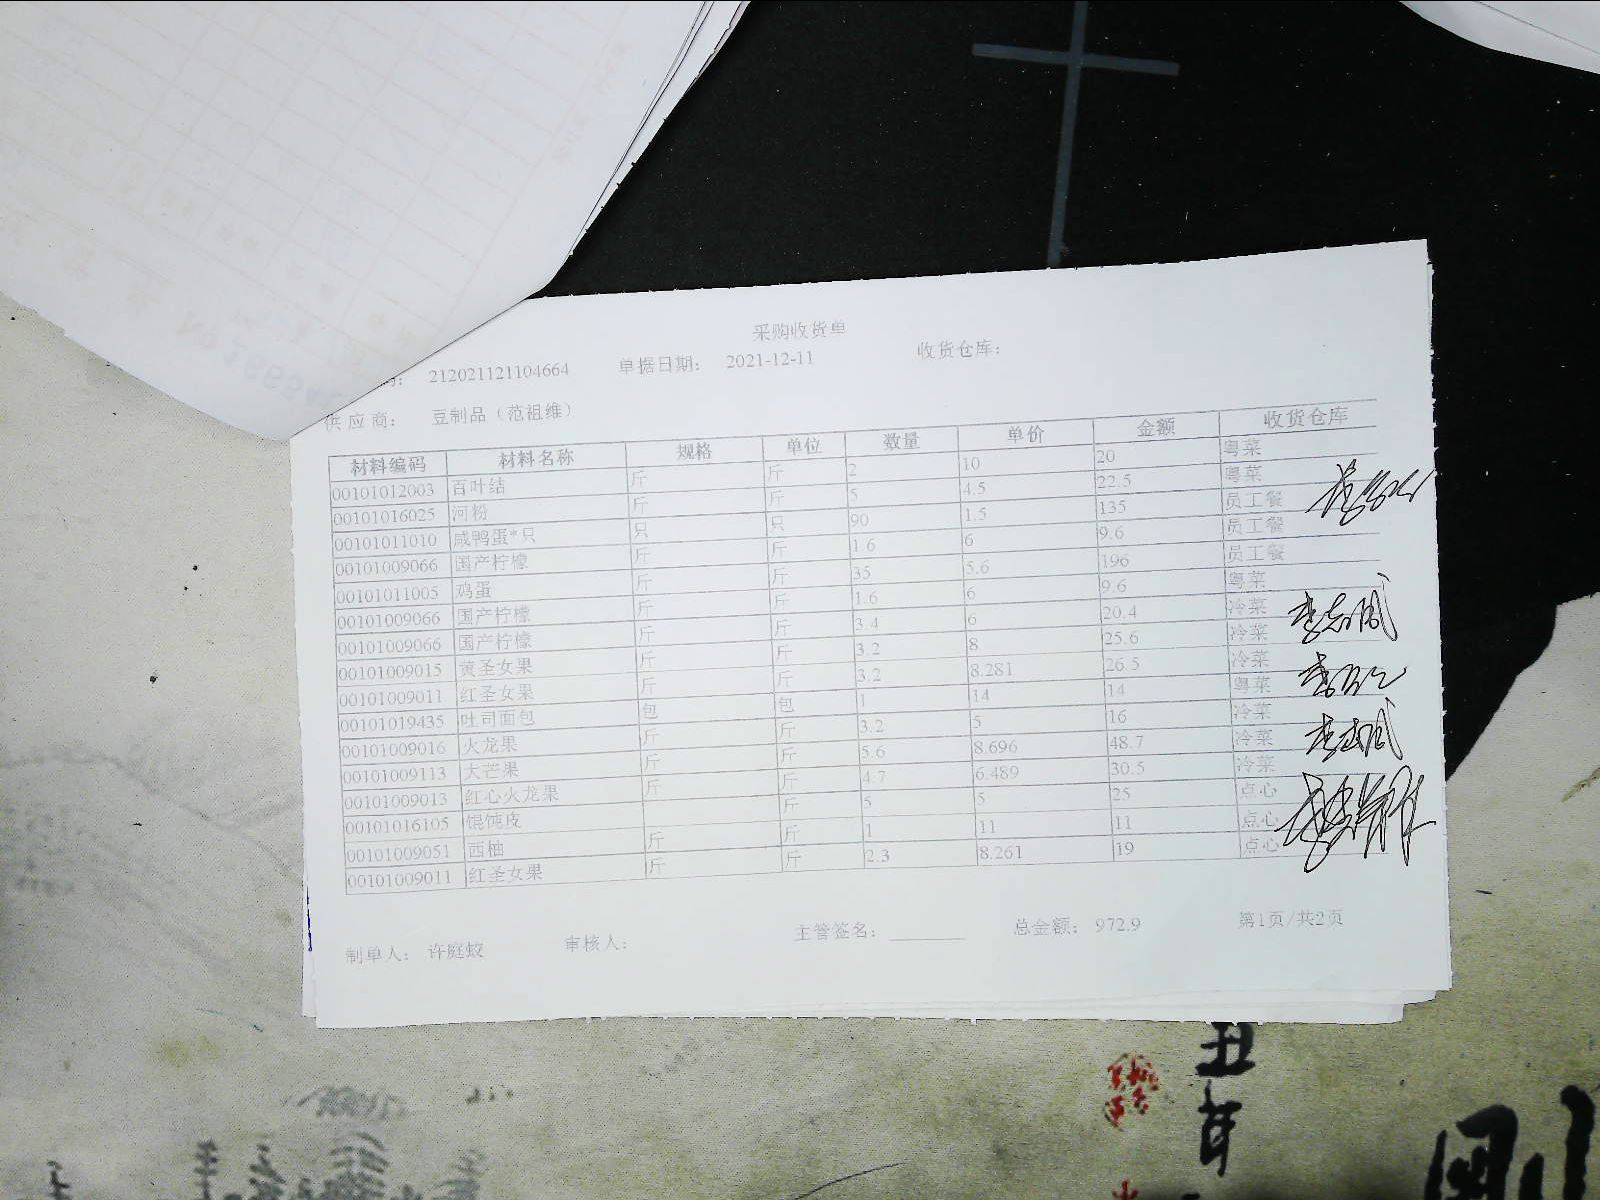 采购收货单
212021121104664 单据日期： 2021-12-11 收货仓库：
供应商： 豆制品（范祖维）
材料编码 材料名称 规格 单位 数量 单价 金额 收货仓库
00101012003 百叶结 斤 斤 2 10 20 粤菜
00101016025 河粉 斤 斤 5 4.5 22.5 粤菜
00101011010 咸鸭蛋*只 只 只 90 1.5 135 员工餐
00101009066 国产柠檬 斤 斤 1.6 6 9.6 员工餐
00101011005 鸡蛋 斤 斤 35 5.6 196 员工餐
00101009066 国产柠檬 斤 斤 1.6 6 9.6 粤菜
00101009066 国产柠檬 斤 斤 3.4 6 20.4 冷菜
00101009015 黄圣女果 斤 斤 3.2 8 25.6 冷菜
00101009011 红圣女果 斤 斤 3.2 8.281 26.5 冷菜
00101019435 吐司面包 包 包 1 14 14 粤菜
00101009016 火龙果 斤 斤 3.2 5 16 冷菜
00101009113 大芒果 斤 斤 5.6 8.696 48.7 冷菜
00101009013 红心火龙果 斤 斤 4.7 6.489 30.5 冷菜
00101016105 馄饨皮 斤 5 5 25 点心
00101009051 西柚 斤 斤 1 11 11 点心
00101009011 红圣女果 斤 斤 2.3 8.261 19 点心
制单人： 许庭蛟 审核人： 主管签名： 总金额： 972.9 第1页/共2页
丑年